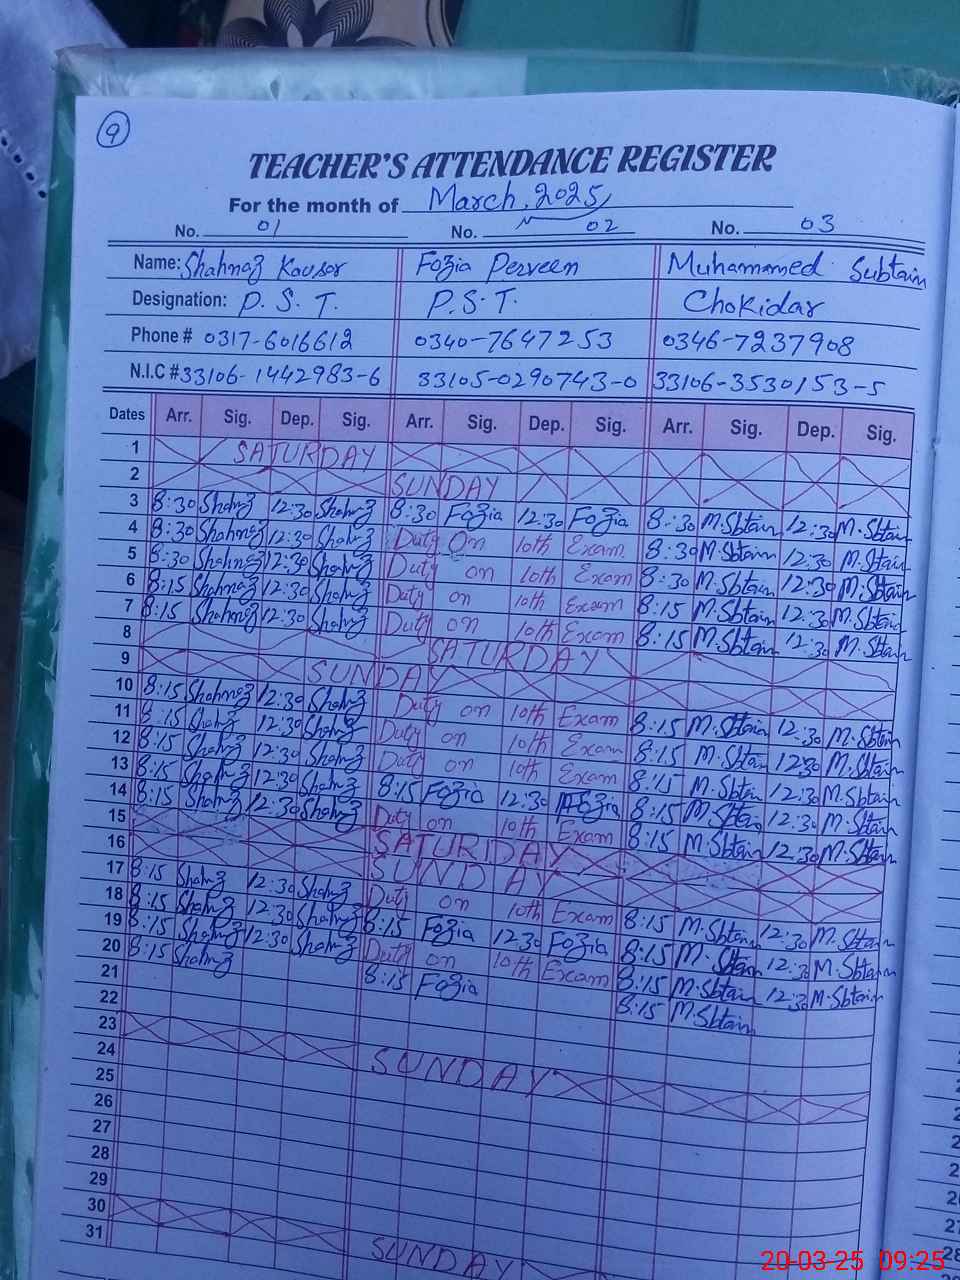 9
TEACHER'S ATTENDANCE REGISTER
For the month of March, 2025
No. 01 No. 02 No. 03
Name: Shahnaz Kousar Fozia Perveen Muhammed Subtain
Designation: P. S. T. P.S.T. Chokidar
Phone # 0317-6016612 0340-7647253 0346-7237908
N.I.C # 33106-1442983-6 33105-0290743-0 33106-3530153-5
Dates Arr. Sig. Dep. Sig. Arr. Sig. Dep. Sig. Arr. Sig. Dep. Sig.
1 SATURDAY
2 SUNDAY
3 8:30 Shahnaz 12:30 Shahnaz 8:30 Fozia 12:30 Fozia 8:30 M.Sbtain 12:30 M.Sbtain
4 8:30 Shahnaz 12:30 Shahnaz Duty On 10th Exam 8:30 M.Sbtain 12:30 M.Stain
5 8:30 Shahnaz 12:30 Shahnaz Duty on 10th Exam 8:30 M.Sbtain 12:30 M.Sbtain
6 8:15 Shahnaz 12:30 Shahnaz Duty on 10th Exam 8:15 M.Sbtain 12:30 M.Sbtain
7 8:15 Shahnaz 12:30 Shahnaz Duty on 10th Exam 8:15 M.Sbtain 12:30 M.Sbtain
8 SATURDAY
9 SUNDAY
10 8:15 Shahnaz 12:30 Shahnaz Duty on 10th Exam 8:15 M.Sbtain 12:30 M.Sbtain
11 8:15 Shahnaz 12:30 Shahnaz Duty on 10th Exam 8:15 M.Sbtain 12:30 M.Sbtain
12 8:15 Shahnaz 12:30 Shahnaz Duty on 10th Exam 8:15 M.Sbtain 12:30 M.Sbtain
13 8:15 Shahnaz 12:30 Shahnaz 8:15 Fozia 12:30 Fozia 8:15 M.Sbtain 12:30 M.Sbtain
14 8:15 Shahnaz 12:30 Shahnaz Duty on 10th Exam 8:15 M.Sbtain 12:30 M.Sbtain
15 SATURDAY
16 SUNDAY
17 8:15 Shahnaz 12:30 Shahnaz Duty on 10th Exam 8:15 M.Sbtain 12:30 M.Sbtain
18 8:15 Shahnaz 12:30 Shahnaz 8:15 Fozia 12:30 Fozia 8:15 M.Sbtain 12:30 M.Sbtain
19 8:15 Shahnaz 12:30 Shahnaz Duty on 10th Exam 8:15 M.Sbtain 12:30 M.Sbtain
20 8:15 Shahnaz 8:15 Fozia 8:15 M.Sbtain
21
22
23 SUNDAY
24
25
26
27
28
29
30 SUNDAY
31
20-03-25 09:25